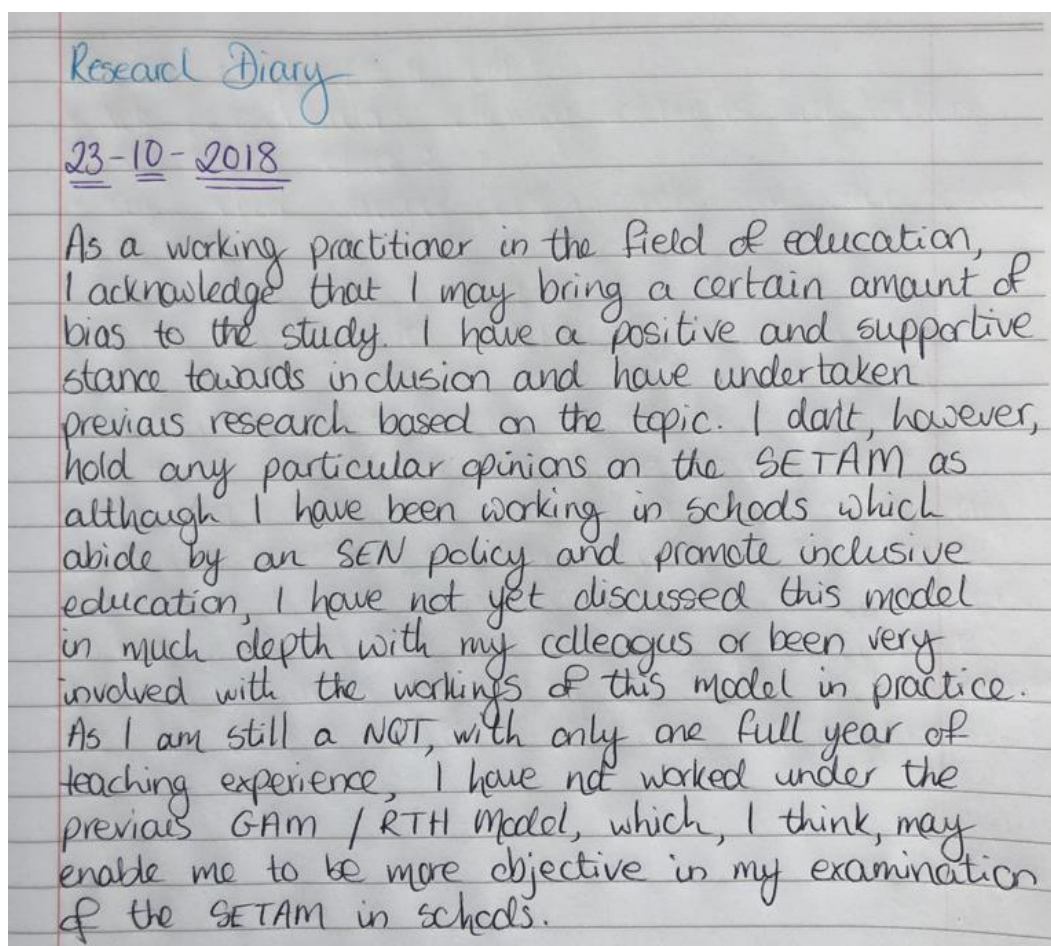 Research Diary
23-10-2018
As a working practitioner in the field of education,
I acknowledge that I may bring a certain amount of
bias to the study. I have a positive and supportive
stance towards inclusion and have undertaken
previous research based on the topic. I don't, however,
hold any particular opinions on the SETAM as
although I have been working in schools which
abide by an SEN policy and promote inclusive
education, I have not yet discussed this model
in much depth with my colleagus or been very
involved with the workings of this model in practice.
As I am still a NQT, with only one full year of
teaching experience, I have not worked under the
previous GAM / RTH Model, which, I think, may
enable me to be more objective in my examination
of the SETAM in schools.